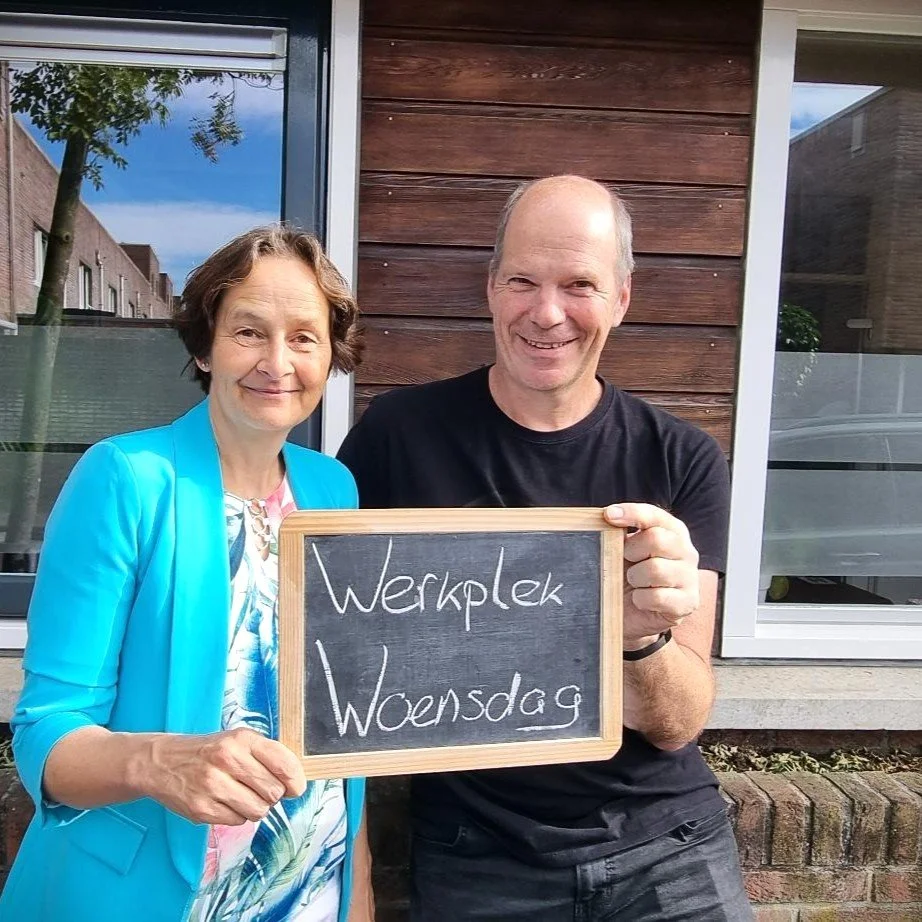 Werkplek
Woensdag